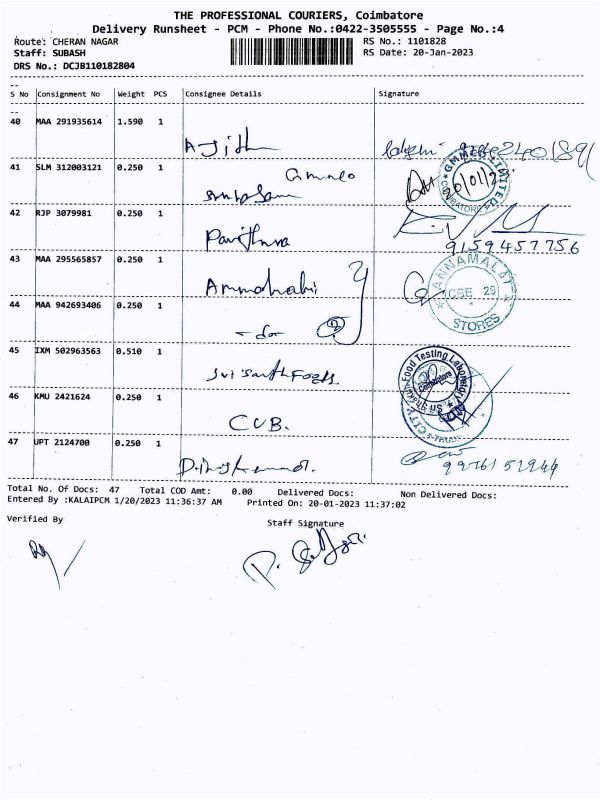 THE PROFESSIONAL COURIERS, Coimbatore
Delivery Runsheet - PCM - Phone No.:0422-3505555 - Page No.:4
Route: CHERAN NAGAR RS No.: 1101828
Staff: SUBASH RS Date: 20-Jan-2023
DRS No.: DCJB110182804
--
S No Consignment No Weight PCS Consignee Details Signature
--
40 MAA 291935614 1.590 1
Ajith
41 SLM 312003121 0.250 1
GMMCO LIMITED
COIMBATORE
20/01/23
42 RJP 3079981 0.250 1
Pavithra
9159457756
43 MAA 295565857 0.250 1
ANNAMALAI
CBE 29
STORES
44 MAA 942693406 0.250 1
-do-
45 IXM 502963563 0.510 1
Food Testing Laboratory
Coimbatore
46 KMU 2421624 0.250 1
CUB.
47 UPT 2124700 0.250 1
Total No. Of Docs: 47 Total COD Amt: 0.00 Delivered Docs: Non Delivered Docs:
Entered By :KALAIPCM 1/20/2023 11:36:37 AM Printed On: 20-01-2023 11:37:02
Verified By Staff Signature